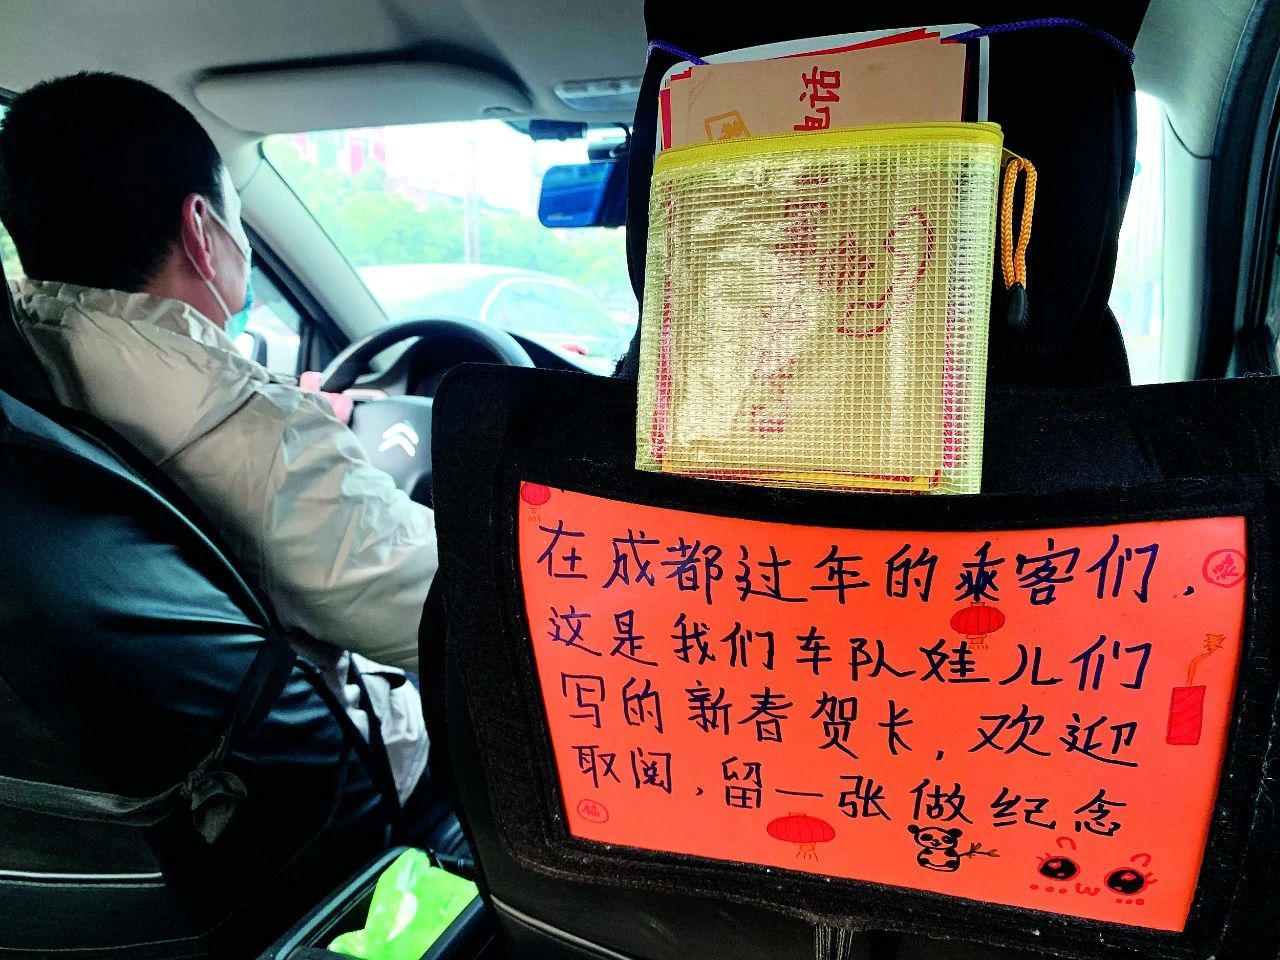 电话
在成都过年的乘客们，
这是我们车队娃儿们
写的新春贺卡，欢迎
取阅，留一张做纪念